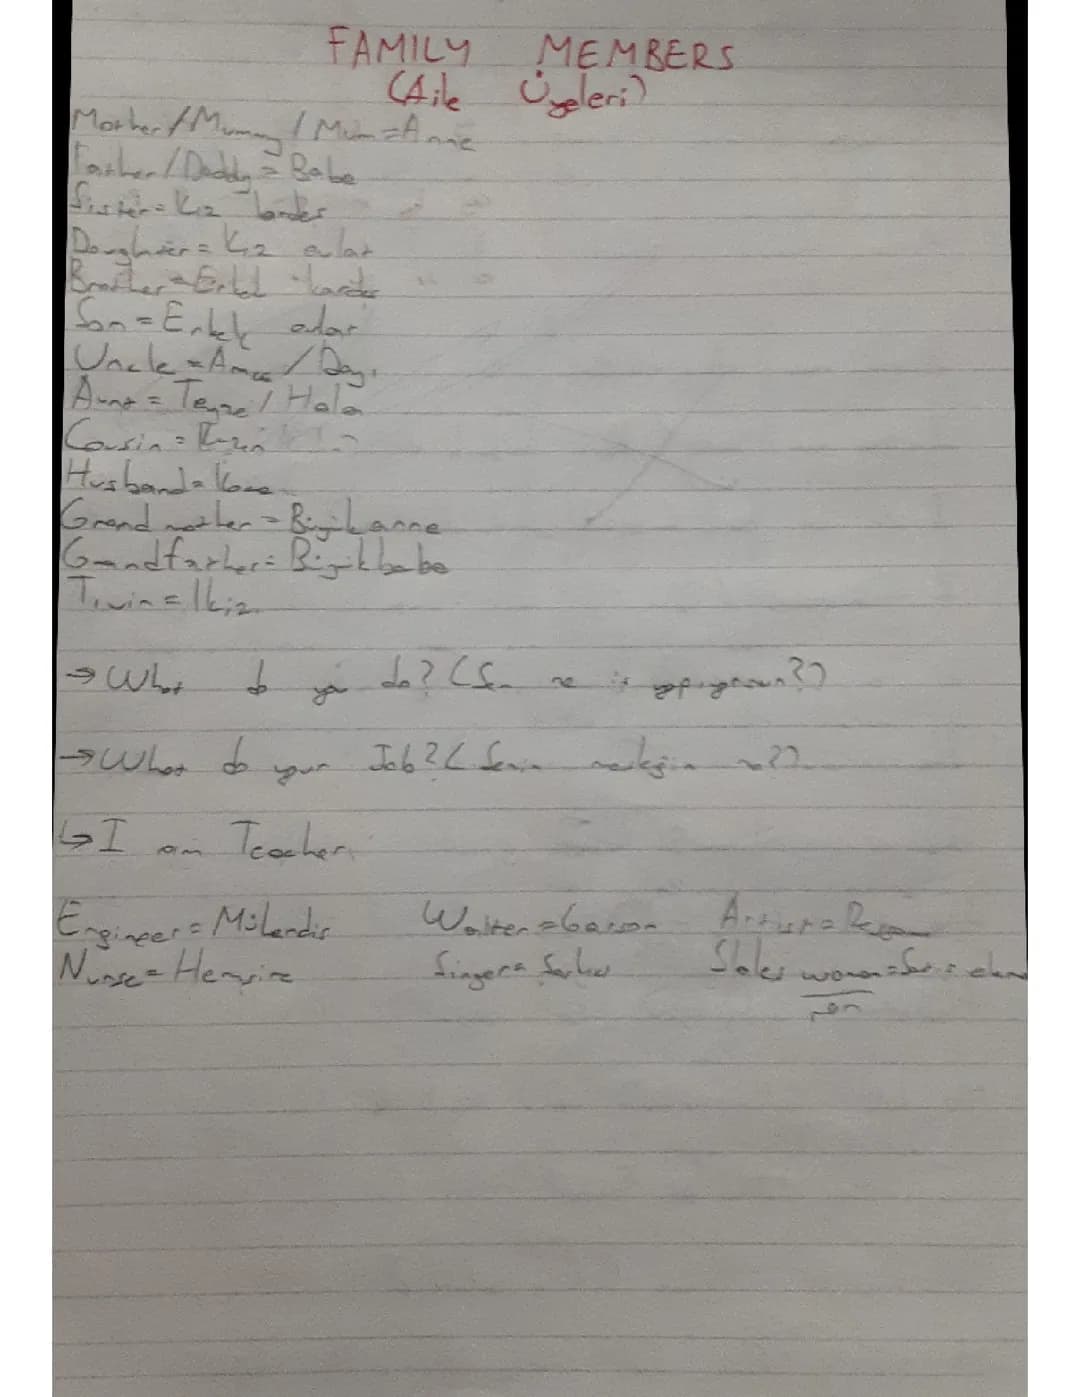 FAMILY MEMBERS
(Aile Üyeleri)
Mother / Mummy / Mum = Anne
Father / Daddy = Baba
Sister = Kız kardeş
Doughter = Kız evlat
Brother = Erkek kardeş
Son = Erkek evlat
Uncle = Amca / Dayı
Aunt = Teyze / Hala
Cousin = Kuzen
Husband = Koca
Grand mother = Büyük anne
Grandfather = Büyük baba
Twin = İkiz
→ What do you do? (Sen ne iş yapıyorsun?)
→ What do your Job? (Senin mesleğin ne?)
↳ I am Teacher
Engineer = Mühendis Waiter = Garson Artist = Ressam
Nurse = Hemşire Singer = Şarkıcı Sales woman =
man